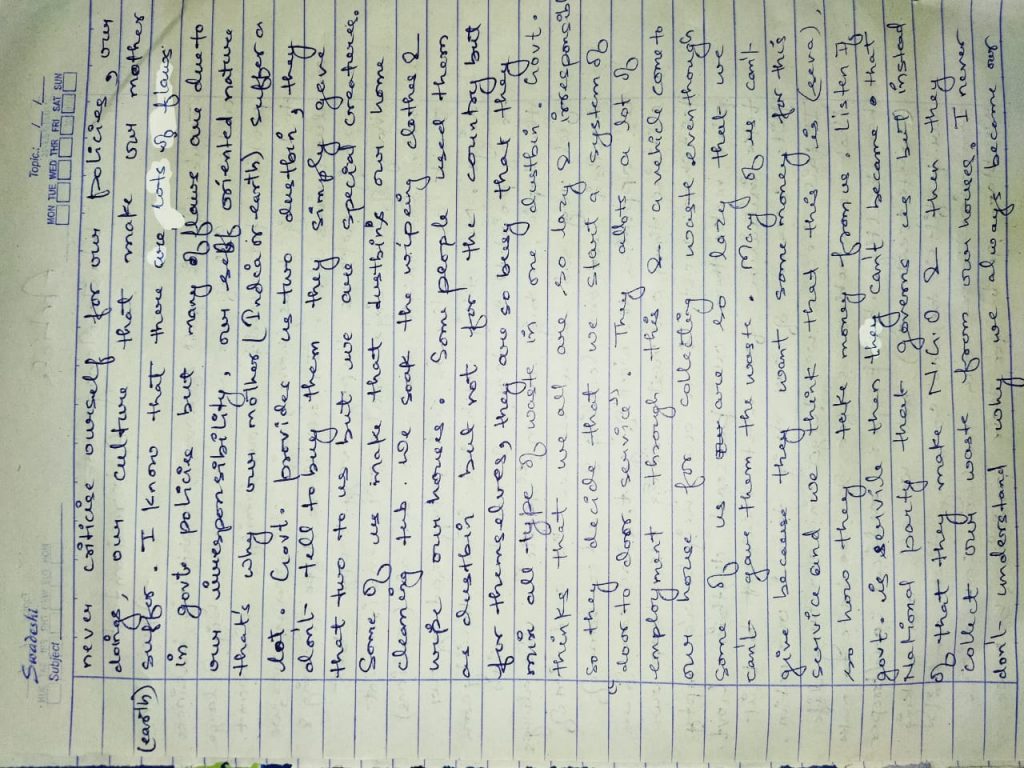 Swadeshi
Subject:
Topic:
MON TUE WED THR FRI SAT SUN
never criticise ourself for our policies, our
doings, our culture that make our mother
(earth) suffer. I know that there are lots of flaws
in govt. policise but many of flaws are due to
our irresponsibility, our self oriented nature
that's why our mother (India or earth) suffer a
lot. Govt. provides us two dustbin, they
don't tell to buy them they simply gave
that two to us but we are special creatures.
Some of us make that dustbins our home
cleaning tub. we soak the wiping clothes &
wipe our houses. Some pleople used them
as dustbin but not for the country but
for themselves, they are so busy that they
mix all type of waste in one dustbin. Govt.
thinks that we all are so lazy & irresponsible
so they decide that we start a system of
"door to door service". They allots a lot of
employment through this & a vehicle come to
our house for collecting waste eventhough
some of us are so lazy that we
can't gave them the waste. Many of us can't
give because they want some money for this
service and we think that this is (seva),
so how they take money from us. Listen If
govt. is servile then they can't become that
National party that governs us but instead
of that they make N.G.O & then they
collect our waste from our houses. I never
don't understand why we always become our